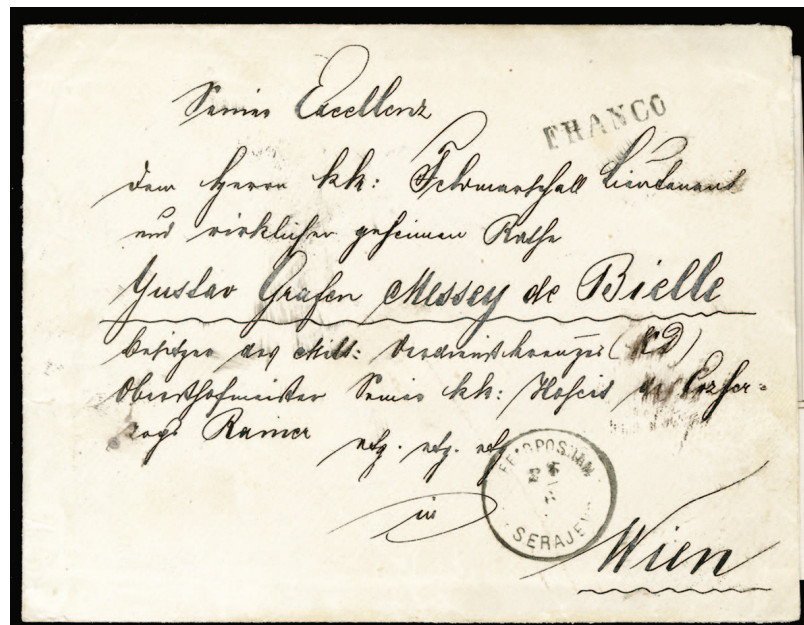 Seiner Excellenz
FRANCO
dem Herrn kk: Feldmarschall Lieutenant
und wirklichen geheimen Rathe
Gustav Grafen Messey de Bielle
Besitzer des Milt: Verdienstkreuzes (KD)
Obersthofmeister Seiner kk: Hoheit des Erzher-
zogs Rainer etz. etz. etz.
FELDPOSTAM
in
SERAJEV
Wien